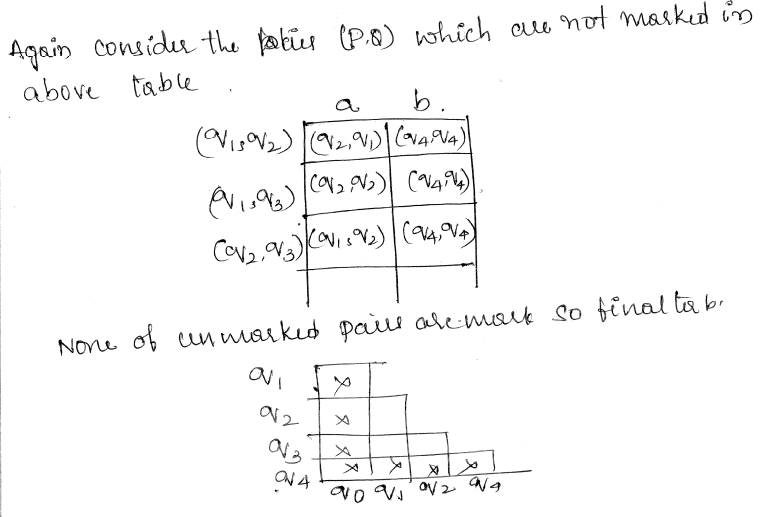 Again consider the pairs (P,Q) which are not marked in
above table .
a b.
(q1, q2) (q2, q1) (q4, q4)
(q1, q3) (q2, q2) (q4, q4)
(q2, q3) (q1, q2) (q4, q4)
None of unmarked pairs are mark so final tab.
q1 x
q2 x
q3 x
q4 x x x x
q0 q1 q2 q4